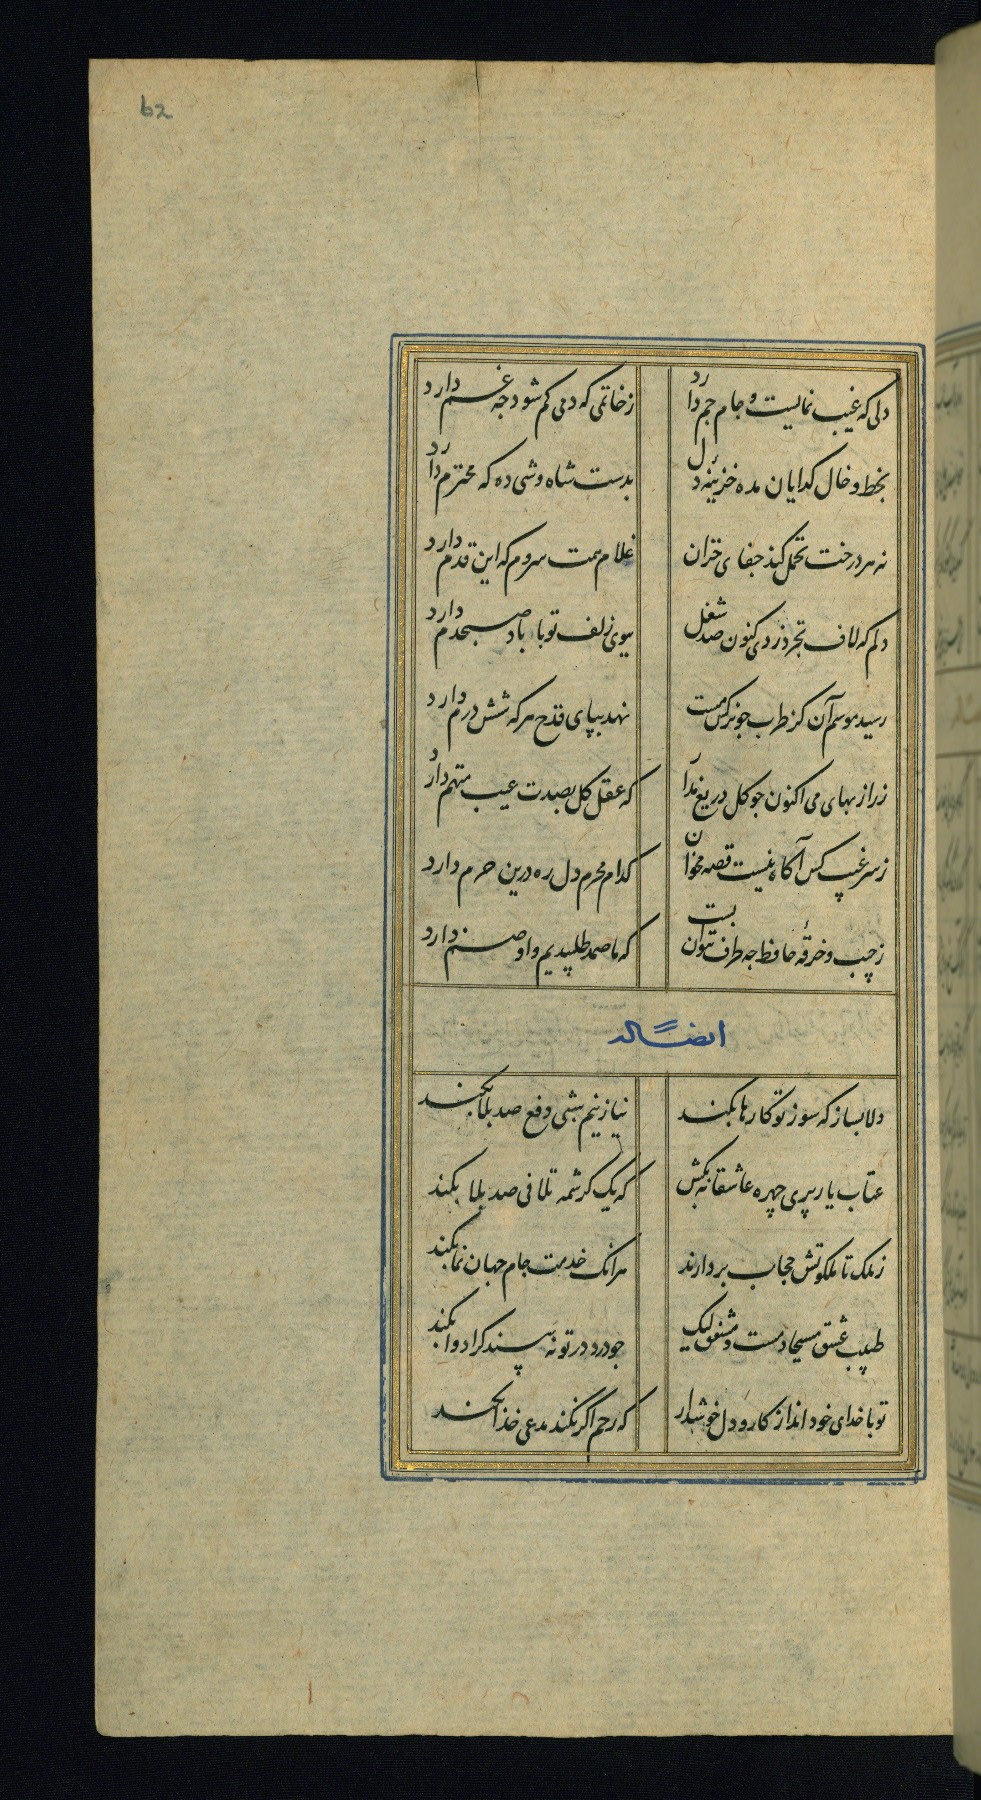 62
دلی که غیب نمایست و جام جم دارد
زخاتمی که دمی کم شود چه غم دارد
بخط و خال کدایان مده خزینهٔ دل
بدست شاه وشی ده که محترم دارد
نه هر درخت تحمل کند جفای خزان
غلام همت سروم که این قدم دارد
دلم که لاف تجرد زدی کنون صد شغل
ببوی زلف تو با باد صبحدم دارد
رسید موسم آن کز طرب جو نرکس مست
نهد بپای قدح هر که شش درم دارد
زر از بهای می اکنون جو کل دریغ مدار
که عقل کل بصدت عیب متهم دارد
ز سر غیب کس آکاه نیست قصه مخوان
کدام محرم دل ره درین حرم دارد
ز جیب و خرقهٔ حافظ جه طرف بتوان بست
که ما صمد طلبیدیم و او صنم دارد
ایضاً له
دلا بساز که سوز تو کارها بکند
نیاز نیم شبی دفع صد بلا بکند
عتاب یار پری چهره عاشقانه بکش
که یک کرشمه تلافی صد بلا بکند
ز ملک تا ملکوتش حجاب بردارند
هر انک خدمت جام جهان نما بکند
طبیب عشق مسیحا دمست و مشفق لیک
جو درد در تو نه بیند کرا دوا بکند
تو با خدای خود انداز کار و دل خوشدار
که رحم اگر نکند مدعی خذا بکند